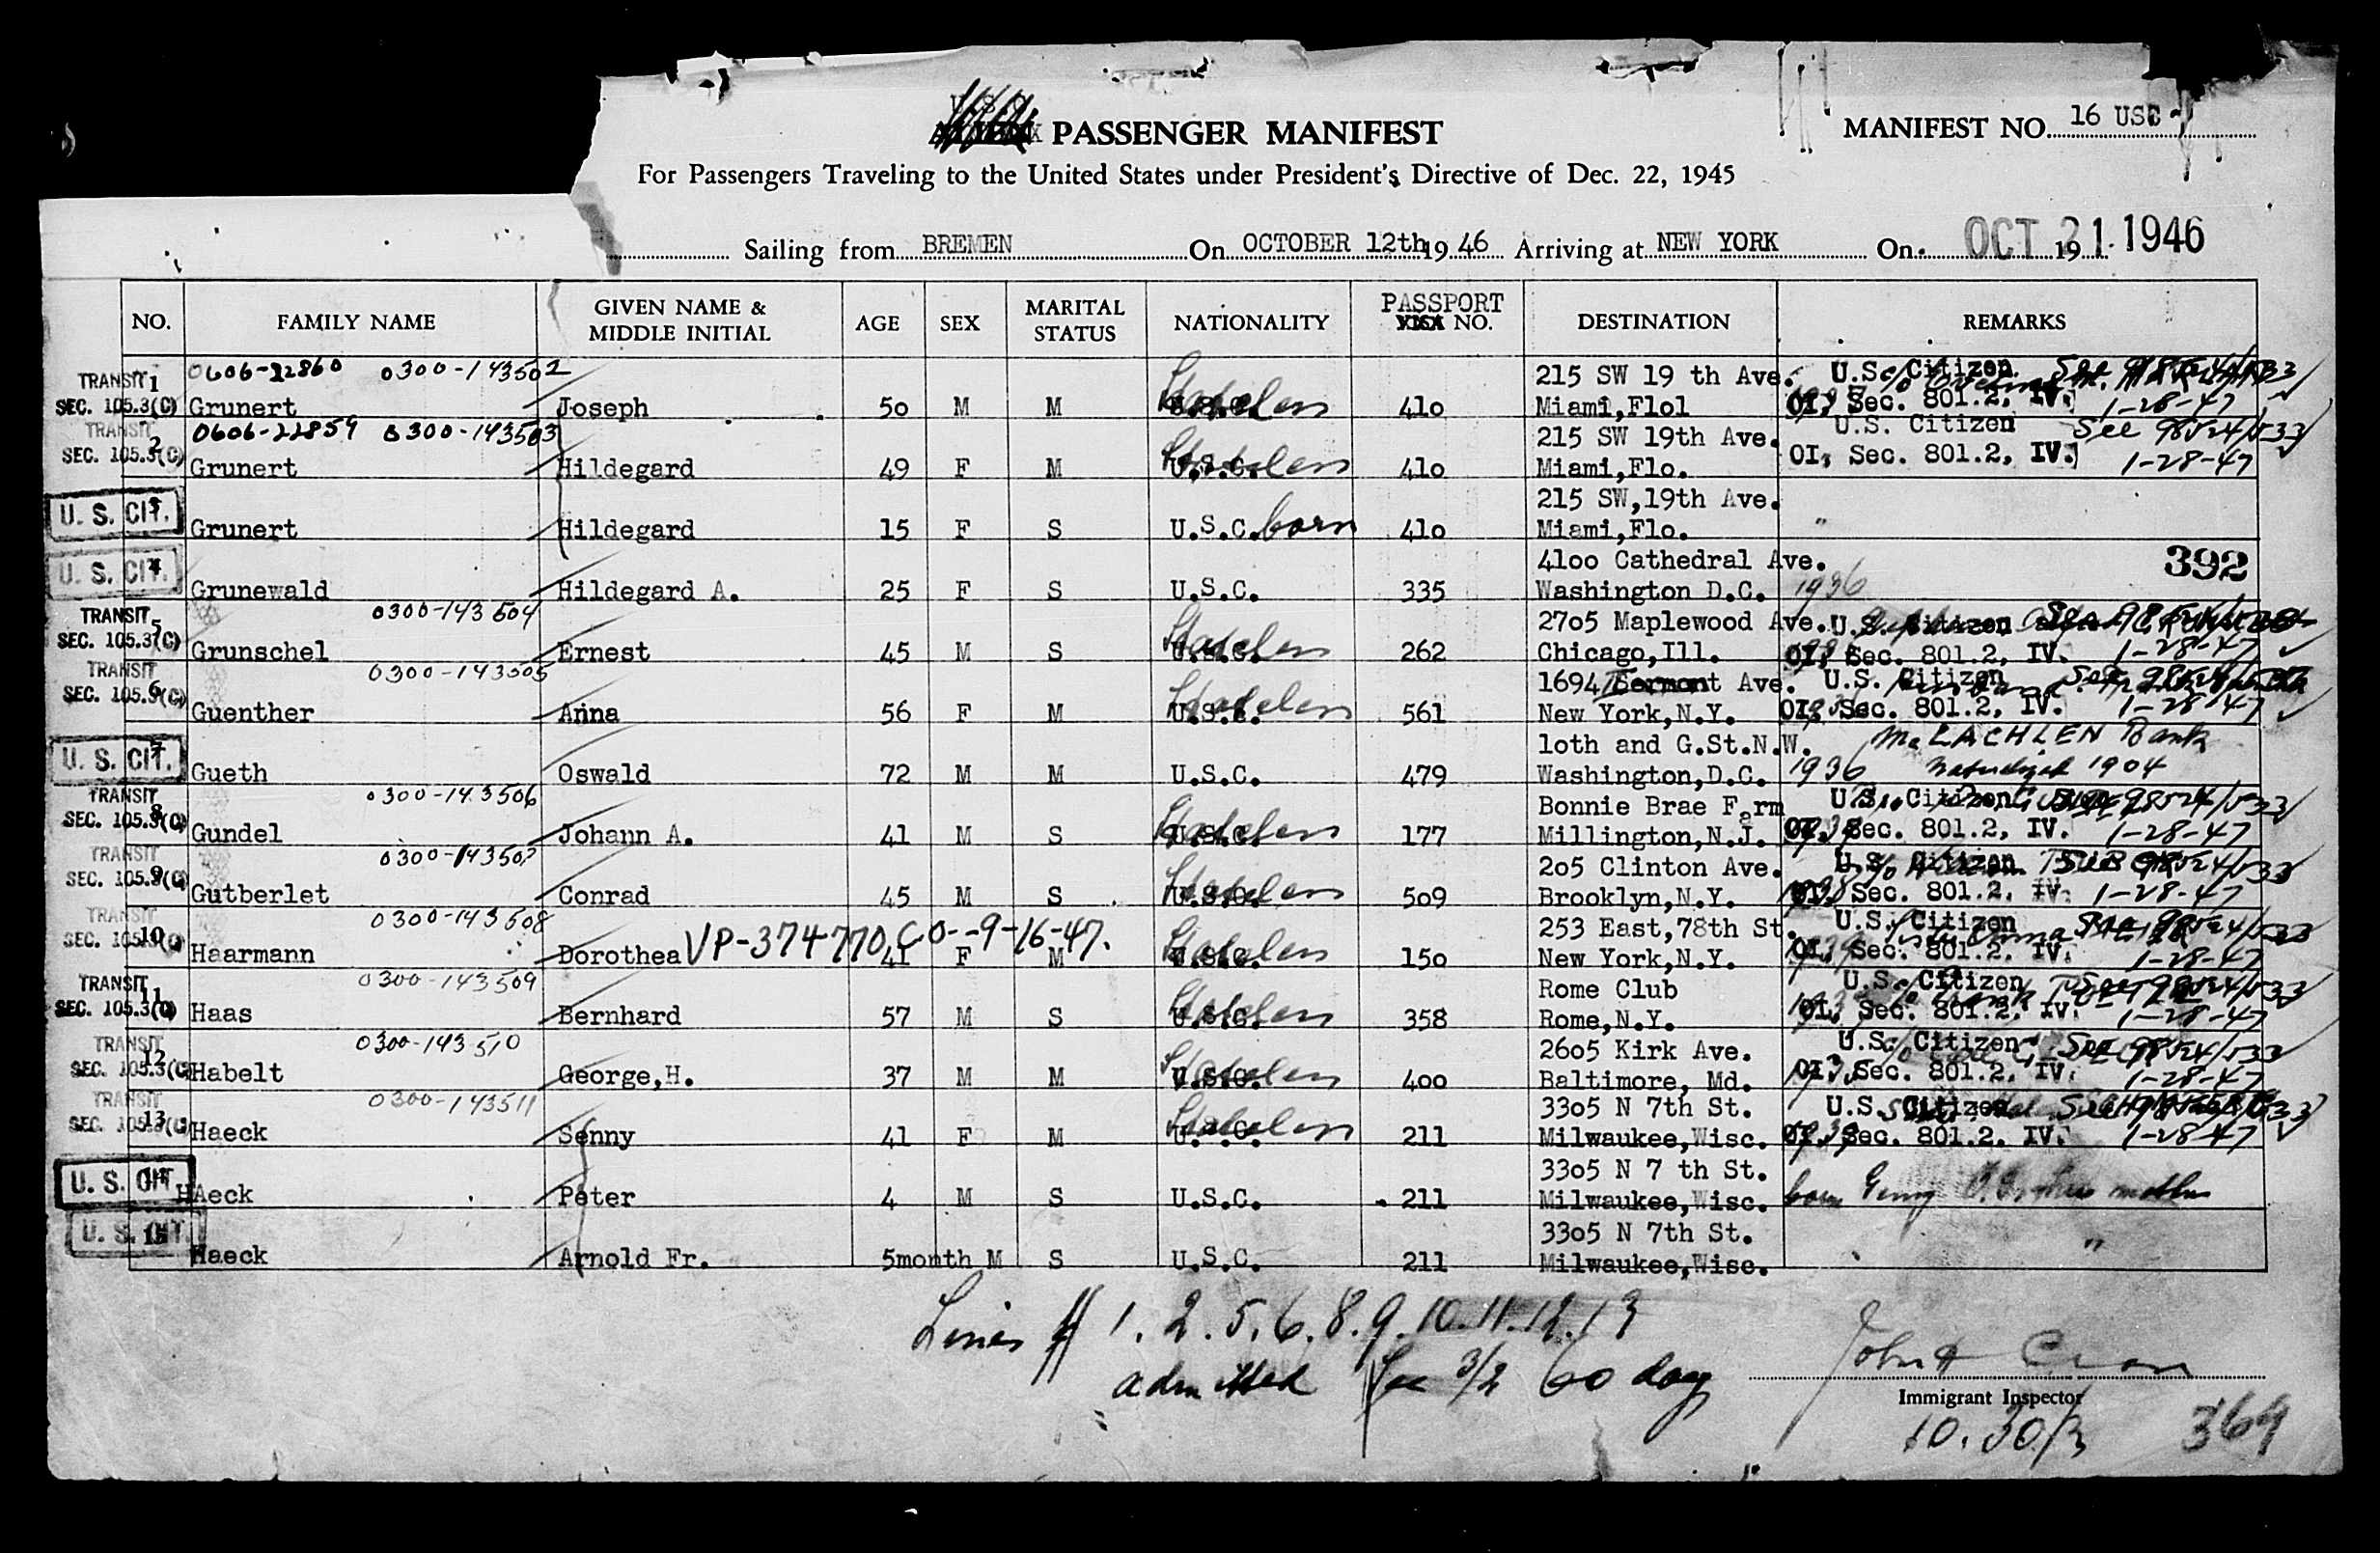 U.S.C.
PASSENGER MANIFEST
MANIFEST NO. 16 USC
For Passengers Traveling to the United States under President's Directive of Dec. 22, 1945
Sailing from BREMEN On OCTOBER 12th 19 46 Arriving at NEW YORK On OCT 21 1946 19
NO. FAMILY NAME GIVEN NAME & MIDDLE INITIAL AGE SEX MARITAL STATUS NATIONALITY PASSPORT NO. DESTINATION REMARKS
TRANSIT 0606-22860 0300-143502 215 SW 19 th Ave. U.S. Citizen See 98524/533
SEC. 105.3(C) 1 Grunert Joseph 50 M M U.S.C. Stateless 410 Miami,Flol OI, Sec. 801.2, IV. 1-28-47
TRANSIT 0606-22859 0300-143503 215 SW 19th Ave. U.S. Citizen See 98524/533
SEC. 105.3(C) 2 Grunert Hildegard 49 F M U.S.C. Stateless 410 Miami,Flo. OI, Sec. 801.2, IV. 1-28-47
215 SW,19th Ave.
U. S. CIT. 3 Grunert Hildegard 15 F S U.S.C. born 410 Miami,Flo. "
4100 Cathedral Ave. 392
U. S. CIT. 4 Grunewald Hildegard A. 25 F S U.S.C. 335 Washington D.C. 1936
TRANSIT 0300-143504 2705 Maplewood Ave. U.S. Citizen
SEC. 105.3(C) 5 Grunschel Ernest 45 M S U.S.C. Stateless 262 Chicago,Ill. OI, Sec. 801.2, IV. 1-28-47
TRANSIT 0300-143505 1694 Ave. U.S. Citizen See
SEC. 105.3(C) 6 Guenther Anna 56 F M U.S.C. Stateless 561 New York,N.Y. OI, Sec. 801.2, IV. 1-28-47
loth and G.St.N.W. McLACHLEN Bank
U. S. CIT. 7 Gueth Oswald 72 M M U.S.C. 479 Washington,D.C. 1936 1904
TRANSIT 0300-143506 Bonnie Brae Farm U.S. Citizen See 98524/533
SEC. 105.3(C) 8 Gundel Johann A. 41 M S U.S.C. Stateless 177 Millington,N.J. OI, Sec. 801.2, IV. 1-28-47
TRANSIT 0300-143507 205 Clinton Ave. U.S. Citizen See 98524/533
SEC. 105.3(C) 9 Gutberlet Conrad 45 M S U.S.C. Stateless 509 Brooklyn,N.Y. OI, Sec. 801.2, IV. 1-28-47
TRANSIT 0300-143508 253 East,78th St. U.S. Citizen See 98524/533
SEC. 105.3(C) 10 Haarmann Dorothea VP-374770 CO--9-16-47. 41 F M U.S.C. Stateless 150 New York,N.Y. OI, Sec. 801.2, IV. 1-28-47
TRANSIT 0300-143509 Rome Club U.S. Citizen See 98524/533
SEC. 105.3(C) 11 Haas Bernhard 57 M S U.S.C. Stateless 358 Rome,N.Y. OI, Sec. 801.2, IV. 1-28-47
TRANSIT 0300-143510 2605 Kirk Ave. U.S. Citizen See 98524/533
SEC. 105.3(C) 12 Habelt George,H. 37 M M U.S.C. Stateless 400 Baltimore, Md. OI, Sec. 801.2, IV. 1-28-47
TRANSIT 0300-143511 3305 N 7th St. U.S. Citizen See 98524/533
SEC. 105.3(C) 13 Haeck Senny 41 F M U.S.C. Stateless 211 Milwaukee,Wisc. OI, Sec. 801.2, IV. 1-28-47
3305 N 7 th St.
U. S. CIT. 14 HAeck Peter 4 M S U.S.C. 211 Milwaukee,Wisc. born mother
3305 N 7th St.
U. S. CIT. 15 Haeck Arnold Fr. 5month M S U.S.C. 211 Milwaukee,Wisc. "
Lines # 1. 2. 5. 6. 8. 9. 10. 11. 12. 13
admitted Sec 3/2 60 day
John
Immigrant Inspector
10.30/3 369